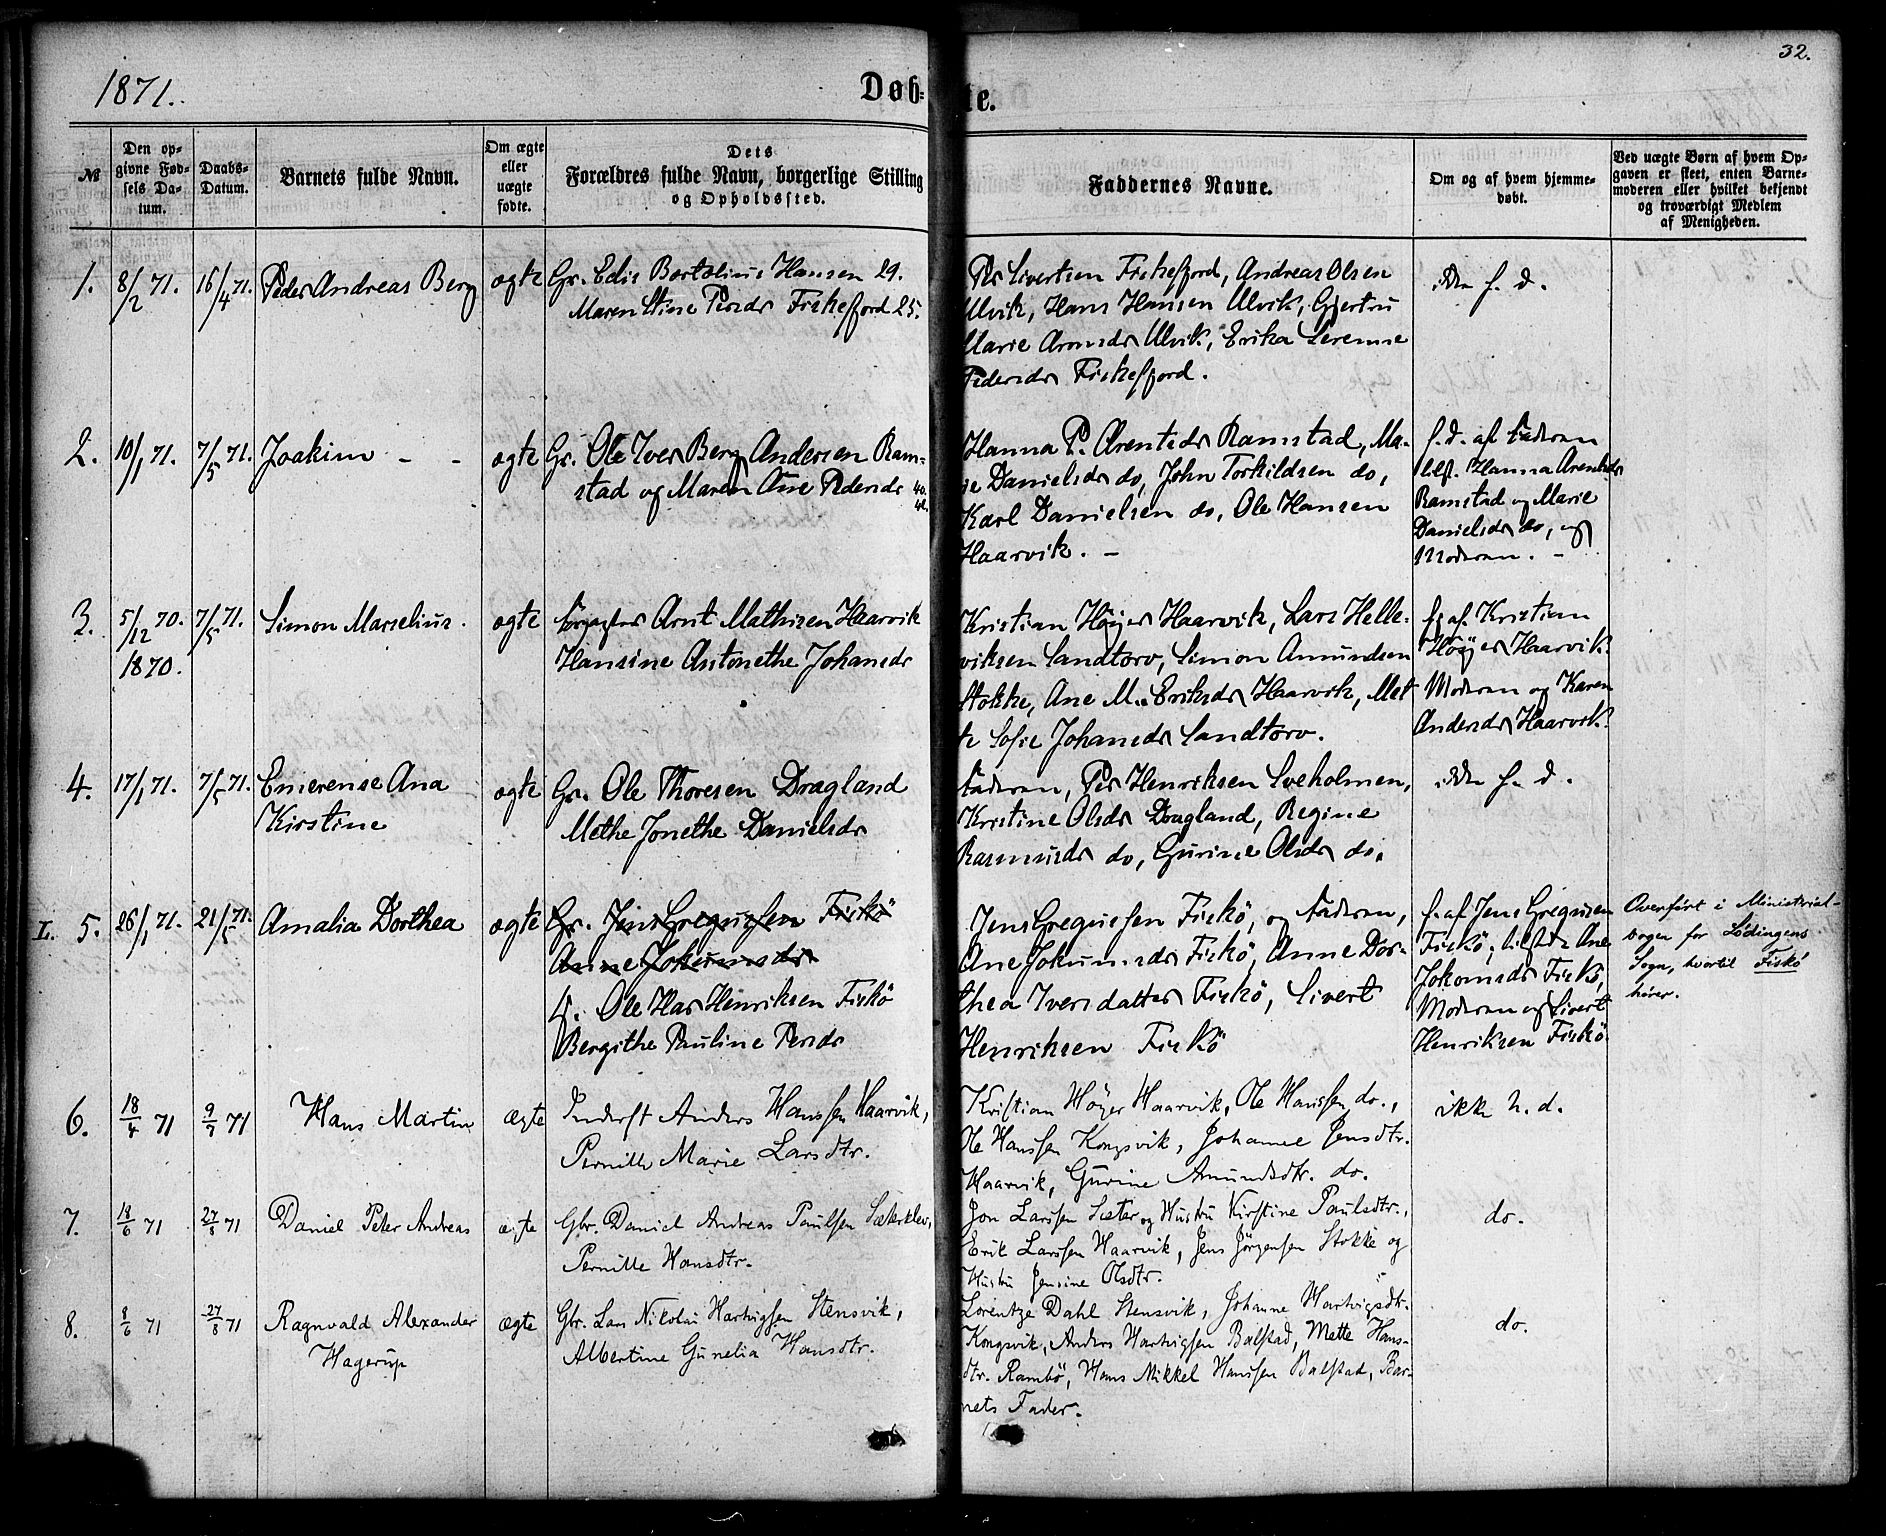 32.
1871. Døb- te.
№
Den op-
givne Fød-
sels Da-
tum.
Daabs-
Datum.
Barnets fulde Navn.
Om ægte
eller
uægte
fødte.
Dets
Forældres fulde Navn, borgerlige Stilling
og Opholdssted.
Faddernes Navne.
Om og af hvem hjemme-
døbt.
Ved uægte Børn af hvem Op-
gaven er skeet, enten Barne-
moderen eller hvilket bekjendt
og troværdigt Medlem
af Menigheden.
1. 8/2 71. 16/4 71. Peder Andreas Berg ægte Gr. Edis Bertolius Hansen 29.
Maren Stine Persdr Fiskefjord 25.
Per Sivertsen Fiskefjord, Andreas Olsen
Ulvik, Hans Hansen Ulvik, Gjertru
Marie Arntsdr Ulvik, Erika Serense
Pedersdr Fiskefjord.
ikke h. d.
2. 10/1 71. 7/5 71. Joakim - - ægte Gr. Ole Iver Berg Andersen Ram-
stad og Maren Ane Pedersdr 40.
Hanna P. Arentsdr Ramstad, Ma-
rie Danielsdr do, John Torkildsen do,
Karl Danielsen do, Ole Hansen
Haarvik. -
h. d. af Faderen
Hanna Arentsdr
Ramstad og Marie
Danielsdr do, og
Moderen. -
3. 5/12 70. 7/5 71. Simon Marselius. ægte Arnt Mathisen Haarvik
1870. Hansine Antonethe Johansdr
Kristian Höyer Haarvik, Lars Helle-
viksen Sandtorv, Simon Amundsen
Stokke, Ane M. Eriksdr Haarvik, Met
te Sofie Johansdr Sandtorv.
h. af Kristian
Höyer Haarvik.
Moderen og Karen
Andersdr Haarvik.
4. 17/1 71. 7/5 71. Emerense Ana
Kirstine
ægte Gr. Ole Thoresen Dragland
Methe Jonethe Danielsdr
Faderen, Per Henriksen Sveholmen,
Kristine Olsdr Dragland, Regine
Rasmusdr do, Gurine Olsdr do.
ikke h. d.
L. 5. 26/1 71. 21/5 71. Amalia Dorthea ægte Gr. Jens Gregusen Fiskö
Anne Jokumsdr
G. Ole Has Henriksen Fiskö
Bergithe Pauline Persdr
Jens Gregusen Fiskö, og Faderen,
Ane Jokumsdr Fiskö, Anne Dor-
thea Iversdatter Fiskö, Sivert
Henriksen Fiskö
h. af Jens Gregusen
Fiskö, tilstede Ane
Jokomsdr Fiskö,
Moderen og Sivert
Henriksen Fiskö.
Overført i Ministerial-
bogen for Lödingens
Sogn, hvortil Fiskö
hører.
6. 18/4 71 9/7 71 Hans Martin ægte Inderst Anders Hanssen Haarvik,
Pernille Marie Larsdtr.
Kristian Höyer Haarvik, Ole Hanssen do.,
Ole Hanssen Kongsvik, Johanne Jensdtr.
Haarvik, Gurine Amundsdtr. do.
ikke h. d.
7. 18/6 71 27/8 71 Daniel Peter Andreas ægte Gbr. Daniel Andreas Paulsen Sæterklev,
Pernille Hansdtr.
Jon Larssen Sæter og Hustru Kirstine Paulsdtr.,
Erik Larssen Haarvik, Jens Jörgensen Stokke og
Hustru Jensine Olsdtr.
do.
8. 8/6 71 27/8 71 Ragnvald Alexander
Hagerup
ægte Gbr. Lars Nikolai Hartvigsen Stensvik,
Albertine Gunelia Hansdtr.
Lorentze Dahl Stensvik, Johanne Hartvigsdtr.
Kongsvik, Anders Hartvigsen Balstad, Mette Hans-
dtr. Rambö, Hans Mikkel Hanssen Balstad, Bar-
nets Fader.
do.